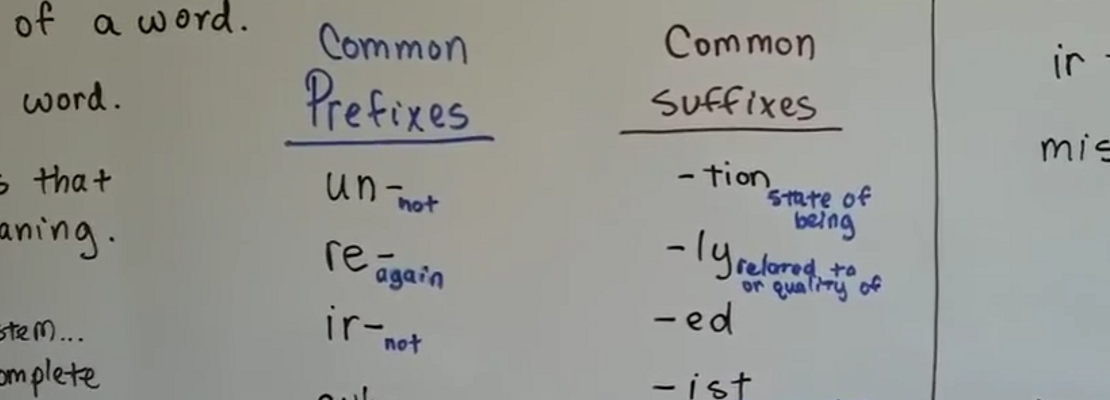 of a word.
word.
that
aning.
stem...
omplete
Common
Prefixes
un- not
re- again
ir- not
Common
Suffixes
-tion state of
being
-ly related to
or quality of
-ed
-ist
ir -
mis